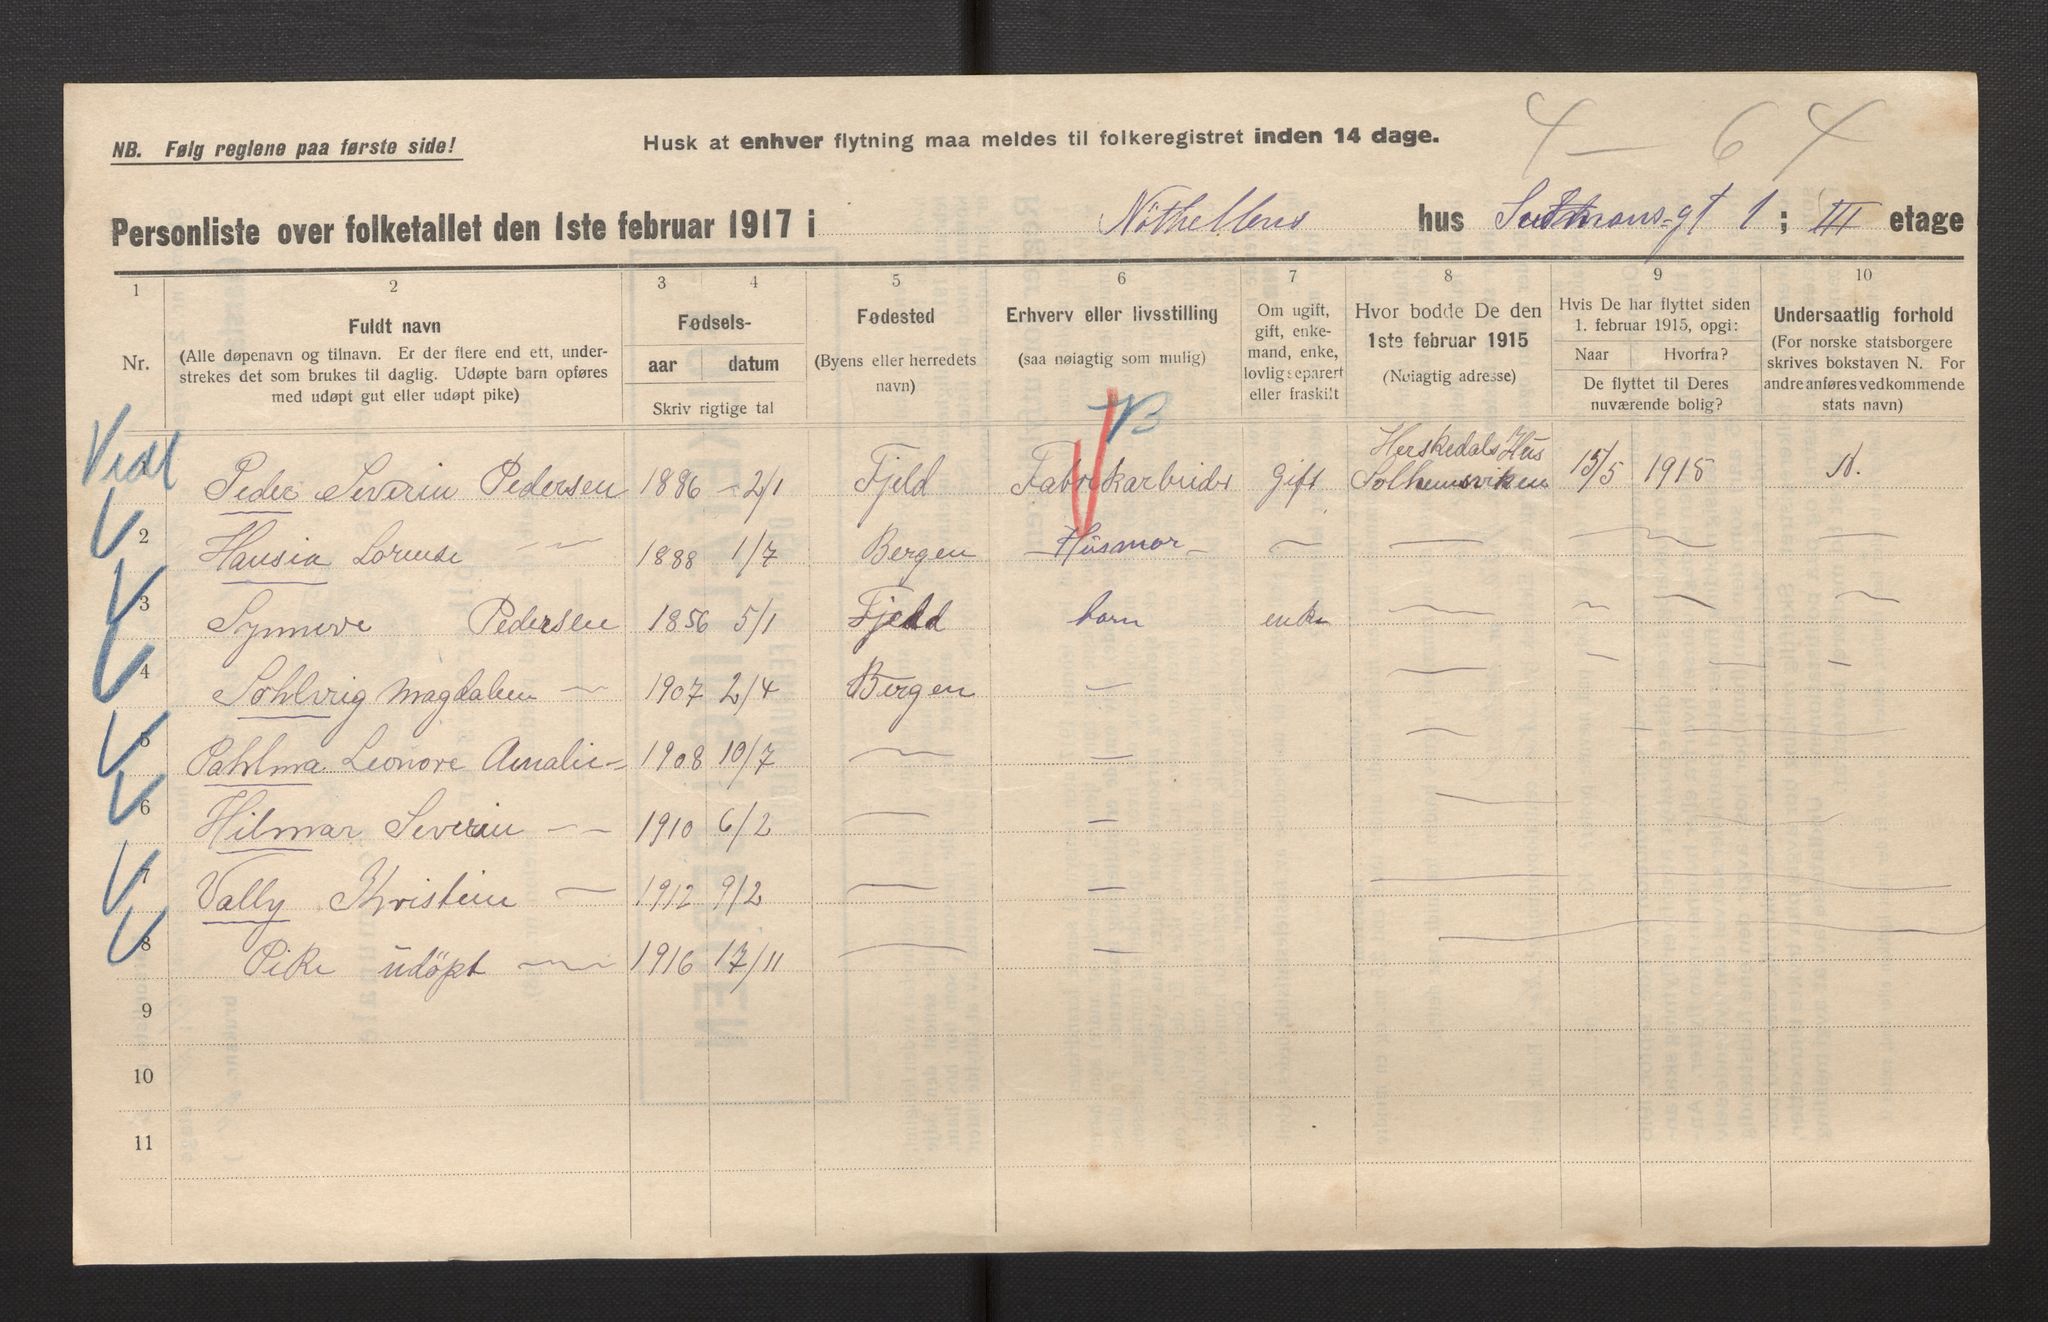 4 — 6 4
NB. Følg reglene paa første side! Husk at enhver flytning maa meldes til folkeregistret inden 14 dage.
Personliste over folketallet den 1ste februar 1917 i hus gt 1 ; III etage
1 2 3 4 5 6 7 8 9 10
Nr.
Fuldt navn
(Alle døpenavn og tilnavn. Er der flere end ett, under-
strekes det som brukes til daglig. Udøpte barn opføres
med udøpt gut eller udøpt pike)
Fødsels-
aar datum
Skriv rigtige tal
Fødested
(Byens eller herredets
navn)
Erhverv eller livsstilling
(saa nøiagtig som mulig)
Om ugift,
gift, enke-
mand, enke,
lovlig separert
eller fraskilt
Hvor bodde De den
1ste februar 1915
(Nøiagtig adresse)
Hvis De har flyttet siden
1. februar 1915, opgi:
Naar Hvorfra?
De flyttet til Deres
nuværende bolig?
Undersaatlig forhold
(For norske statsborgere
skrives bokstaven N. For
andre anføres vedkommende
stats navn)
B
Peder Severin Pedersen 1886 – 2/1 Fjeld Fabrikarbeider Gift Herskedals Hus Solheimsviken 15/5 1915 N.
2 Hansia Lorense — 1888 1/7 Bergen Husmor — — — — —
3 Synneve Pedersen 1856 5/1 Fjeld barn enke — — — —
4 Sohlvrig Magdalen — 1907 2/4 Bergen — — — — —
5 Pahlma Leonore Amalie — 1908 10/7 — — — —
6 Hilmar Severin — 1910 6/2 — — — —
7 Vally Kristin — 1912 9/2 — — — —
8 Pike udöpt — 1916 17/11 — — —
9
10
11